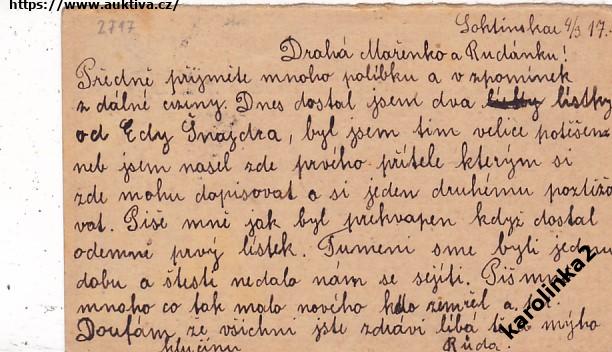 https://www.auktiva.cz/
2717
4/3 17.
Drahá Mařenko a Rudánku!
Předně přijmite mnoho polibku a vzpominek
z dálné ciziny. Dnes dostal jsem dva listky
od Edy Šnajdra, byl jsem tim velice potěšen
neb jsem našel zde prvého přitele kterým si
zde mohu dopisovat a si jeden druhému postižo
vat. Piše mně jak byl překvapen když dostal
odemně prvý listek. Tumeni sme byli jednu
dobu a štesti nedalo nam se sejíti. Piš mně
mnoho co tak malo nového kdo zemřel a
Doufám ze vsichni jste zdrávi líbá mýho
klučinu Růda.
karolinka2